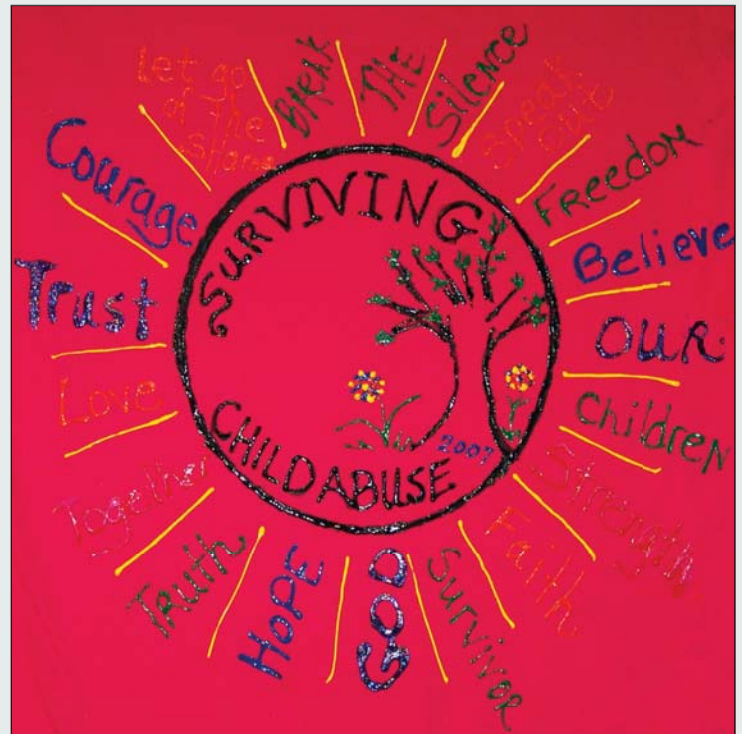 SURVIVING
CHILD ABUSE
2007
Let go
of the
shame
BREAK
THE
Silence
Speak
out
Freedom
Believe
OUR
Children
Strength
Faith
Survivor
GOD
HOPE
Truth
Together
Love
Trust
Courage